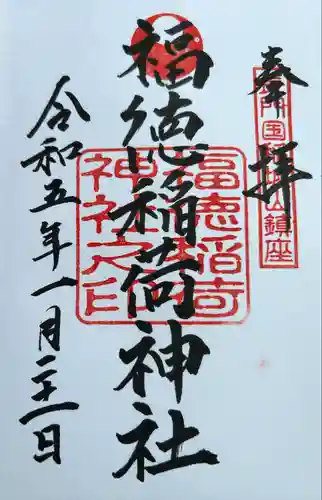 奉拝
福徳稲荷神社
福徳稲荷
神社之印
令和五年一月二十一日